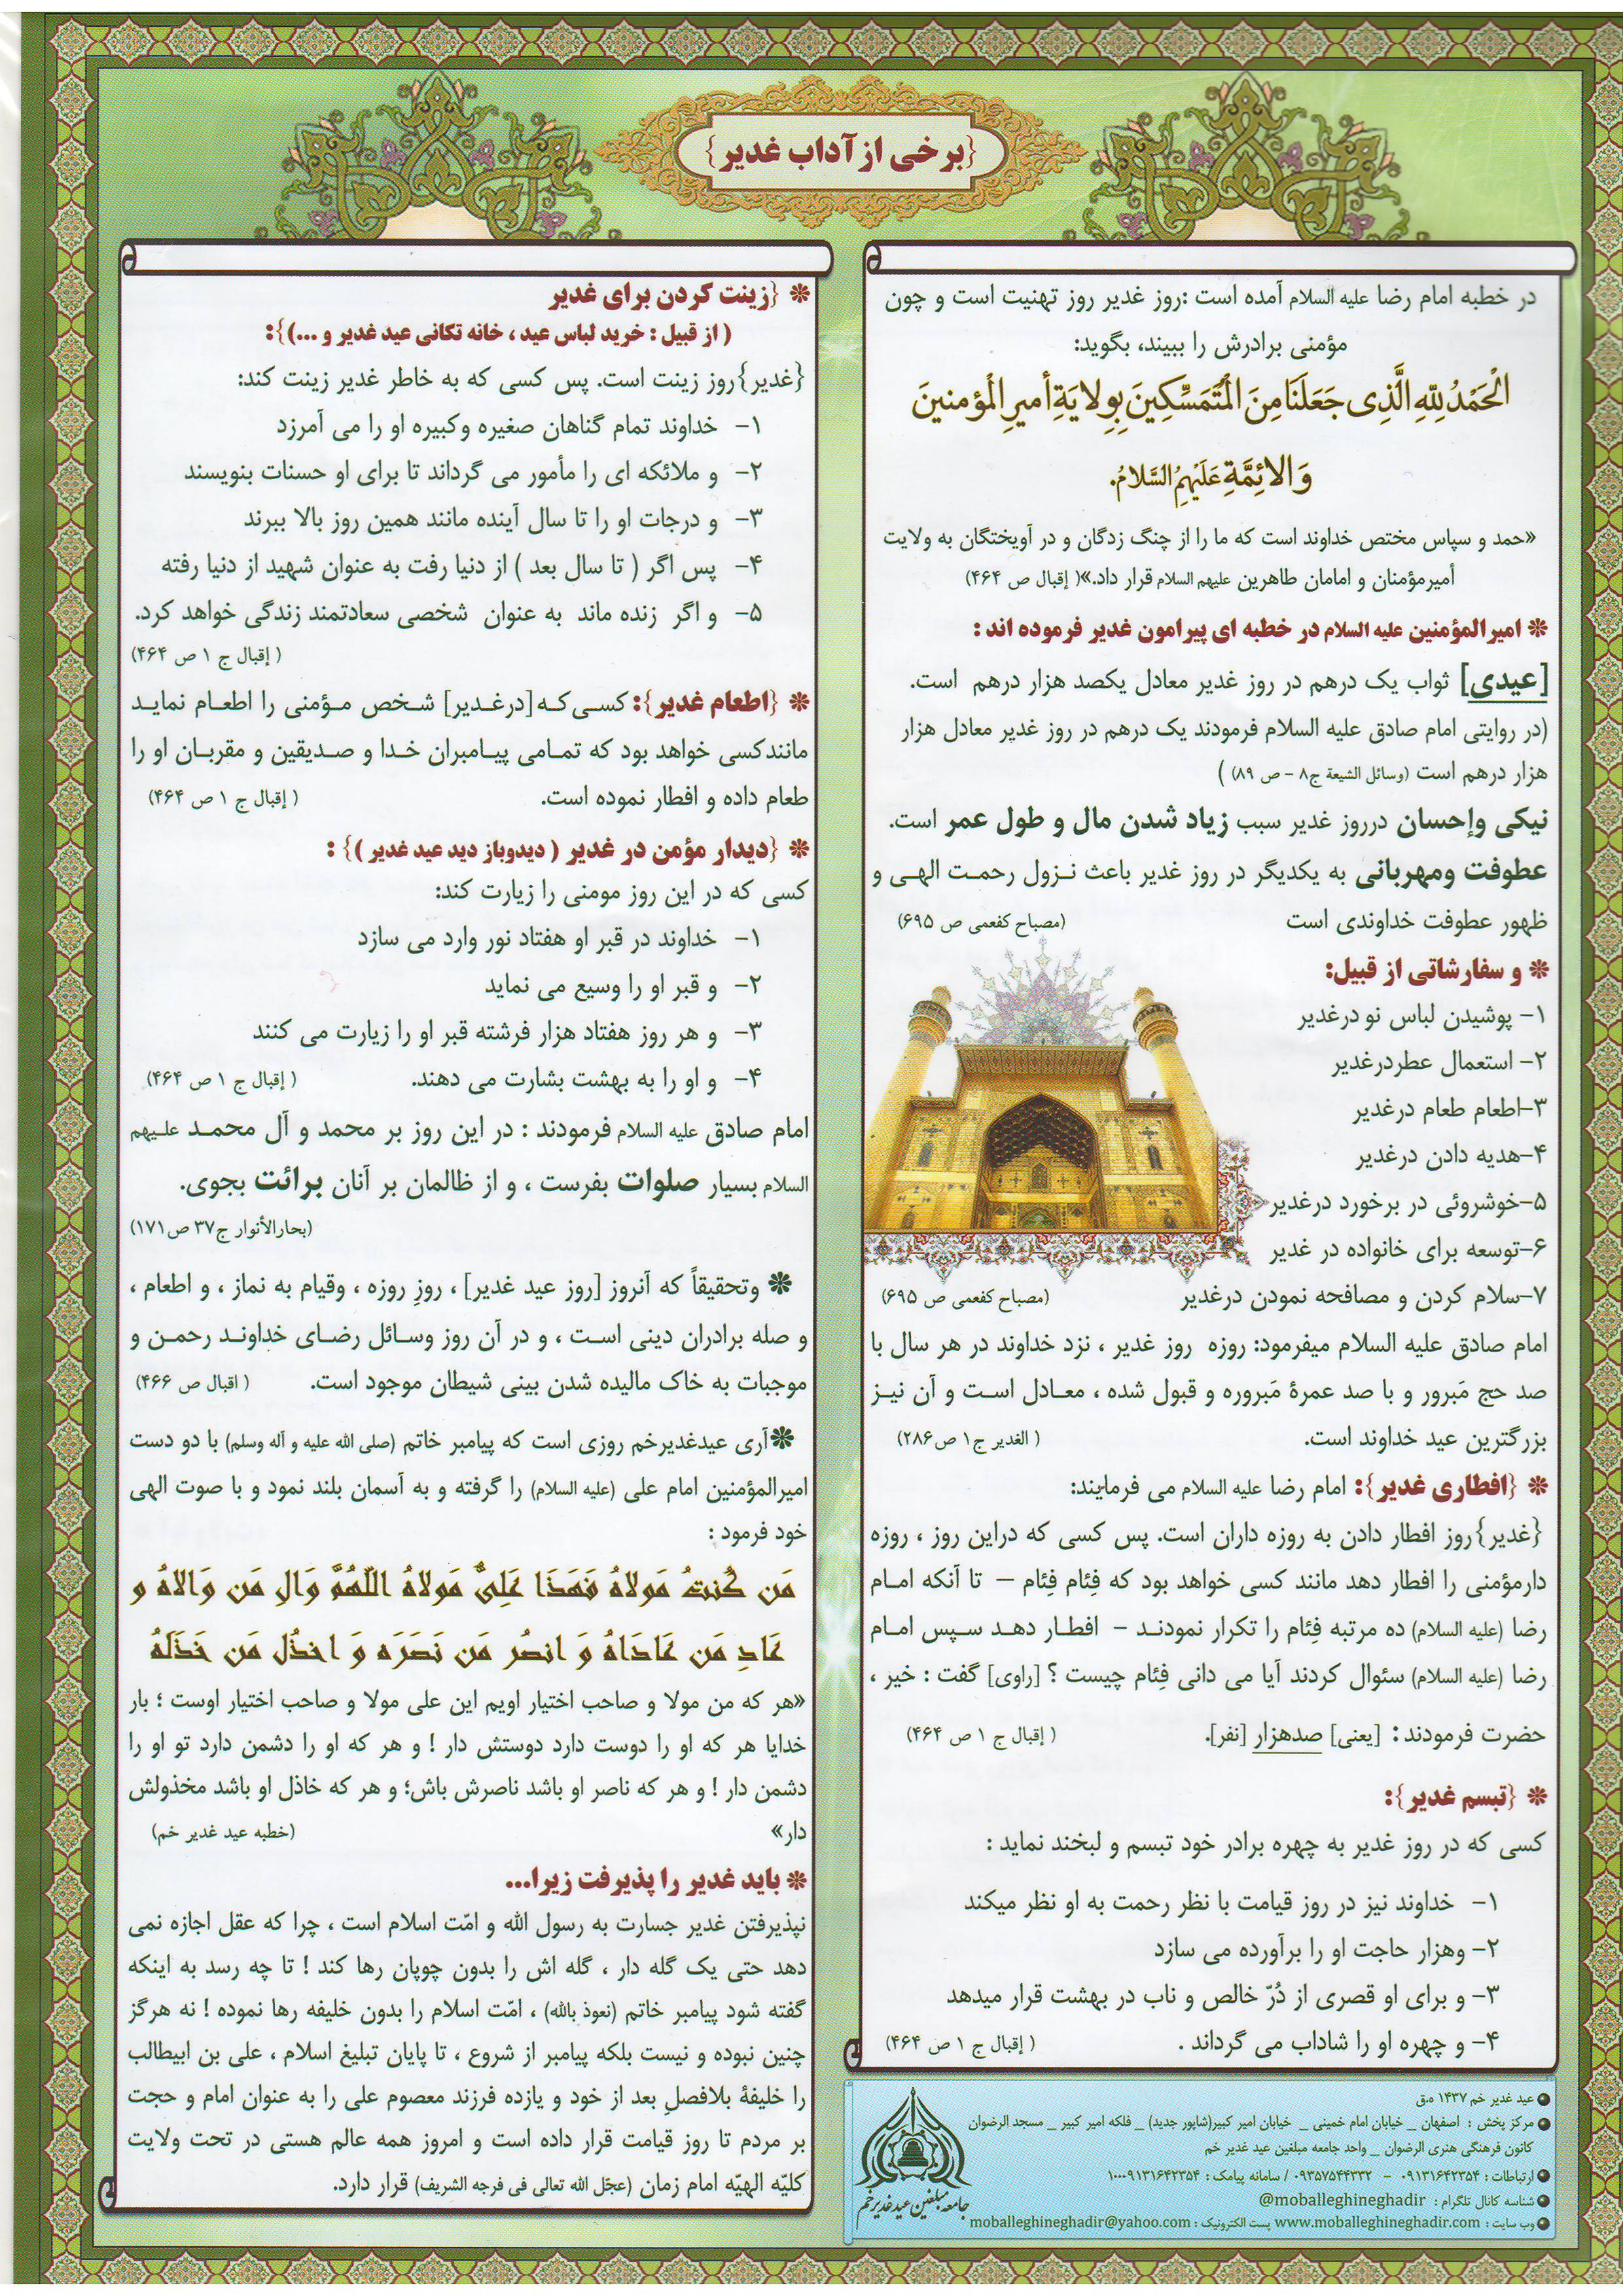 {برخی از آداب غدیر}
در خطبه امام رضا علیه السلام آمده است :روز غدیر روز تهنیت است و چون
مؤمنی برادرش را ببیند، بگوید:
اَلْحَمْدُ لِلّهِ الَّذِی جَعَلَنَا مِنَ الْمُتَمَسِّکِینَ بِوِلایَةِ أمیرِ الْمُؤمنینَ
وَ الائِمَّةِ عَلَیْهِمُ السَّلامُ.
«حمد و سپاس مختص خداوند است که ما را از چنگ زدگان و در آویختگان به ولایت
أمیرمؤمنان و امامان طاهرین علیهم السلام قرار داد.»( إقبال ص ۴۶۴)
❊ امیرالمؤمنین علیه السلام در خطبه ای پیرامون غدیر فرموده اند :
[عیدی] ثواب یک درهم در روز غدیر معادل یکصد هزار درهم است.
(در روایتی امام صادق علیه السلام فرمودند یک درهم در روز غدیر معادل هزار
هزار درهم است (وسائل الشیعة ج۸ – ص ۸۹) )
نیکی وإحسان درروز غدیر سبب زیاد شدن مال و طول عمر است.
عطوفت ومهربانی به یکدیگر در روز غدیر باعث نـزول رحمـت الهـی و
ظهور عطوفت خداوندی است (مصباح کفعمی ص ۶۹۵)
❊ و سفارشاتی از قبیل:
۱- پوشیدن لباس نو درغدیر
۲- استعمال عطردرغدیر
۳-اطعام طعام درغدیر
۴-هدیه دادن درغدیر
۵-خوشروئی در برخورد درغدیر
۶-توسعه برای خانواده در غدیر
۷-سلام کردن و مصافحه نمودن درغدیر (مصباح کفعمی ص ۶۹۵)
امام صادق علیه السلام میفرمود: روزه روز غدیر ، نزد خداوند در هر سال با
صد حج مَبرور و با صد عمرۀ مَبروره و قبول شده ، معـادل اسـت و آن نیـز
بزرگترین عید خداوند است. ( الغدیر ج۱ ص۲۸۶)
❊ {افطاری غدیر}: امام رضا علیه السلام می فرمایند:
{غدیر}روز افطار دادن به روزه داران است. پس کسی که دراین روز ، روزه
دارمؤمنی را افطار دهد مانند کسی خواهد بود که فِئام فِئام – تا آنکه امـام
رضا (علیه السلام) ده مرتبه فِئام را تکرار نمودنـد – افطـار دهـد سـپس امـام
رضا (علیه السلام) سئوال کردند آیا می دانی فِئام چیست ؟ [راوی] گفت : خیر ،
حضرت فرمودند : [یعنی] صدهزار [نفر]. ( إقبال ج ۱ ص ۴۶۴)
❊ {تبسم غدیر}:
کسی که در روز غدیر به چهره برادر خود تبسم و لبخند نماید :
۱- خداوند نیز در روز قیامت با نظر رحمت به او نظر میکند
۲- وهزار حاجت او را برآورده می سازد
۳- و برای او قصری از دُرّ خالص و ناب در بهشت قرار میدهد
۴- و چهره او را شاداب می گرداند . ( إقبال ج ۱ ص ۴۶۴)
● عید غدیر خم ۱۴۳۷ ه.ق
● مرکز پخش : اصفهان _ خیابان امام خمینی _ خیابان امیر کبیر(شاپور جدید) _ فلکه امیر کبیر _ مسجد الرضوان
کانون فرهنگی هنری الرضوان _ واحد جامعه مبلغین عید غدیر خم
● ارتباطات : ۰۹۱۳۱۶۴۲۳۵۴ - ۰۹۳۵۷۵۴۴۳۳۲ / سامانه پیامک : ۱۰۰۰۹۱۳۱۶۴۲۳۵۴
● شناسه کانال تلگرام : @moballeghineghadir
● وب سایت : www.moballeghineghadir.com پست الکترونیک : moballeghineghadir@yahoo.com
جامعه مبلغین عید غدیر خم
❊ {زینت کردن برای غدیر
( از قبیل : خرید لباس عید ، خانه تکانی عید غدیر و ...)}:
{غدیر}روز زینت است. پس کسی که به خاطر غدیر زینت کند:
۱- خداوند تمام گناهان صغیره وکبیره او را می آمرزد
۲- و ملائکه ای را مأمور می گرداند تا برای او حسنات بنویسند
۳- و درجات او را تا سال آینده مانند همین روز بالا ببرند
۴- پس اگر ( تا سال بعد ) از دنیا رفت به عنوان شهید از دنیا رفته
۵- و اگر زنده ماند به عنوان شخصی سعادتمند زندگی خواهد کرد.
( إقبال ج ۱ ص ۴۶۴)
❊ {اطعام غدیر}: کسـی کـه [درغـدیر] شـخص مـؤمنی را اطعـام نمایـد
مانندکسی خواهد بود که تمـامی پیـامبران خـدا و صـدیقین و مقربـان او را
طعام داده و افطار نموده است. ( إقبال ج ۱ ص ۴۶۴)
❊ {دیدار مؤمن در غدیر ( دیدوباز دید عید غدیر )} :
کسی که در این روز مومنی را زیارت کند:
۱- خداوند در قبر او هفتاد نور وارد می سازد
۲- و قبر او را وسیع می نماید
۳- و هر روز هفتاد هزار فرشته قبر او را زیارت می کنند
۴- و او را به بهشت بشارت می دهند. ( إقبال ج ۱ ص ۴۶۴)
امام صادق علیه السلام فرمودند : در این روز بر محمد و آل محمـد علـیهم
السلام بسیار صلوات بفرست ، و از ظالمان بر آنان برائت بجوی.
(بحارالأنوار ج۳۷ ص۱۷۱)
❊ وتحقیقاً که آنروز [روز عید غدیر] ، روزِ روزه ، وقیام به نماز ، و اطعام ،
و صله برادران دینی اسـت ، و در آن روز وسـائل رضـای خداونـد رحمـن و
موجبات به خاک مالیده شدن بینی شیطان موجود است. ( اقبال ص ۴۶۶)
❊آری عیدغدیرخم روزی است که پیامبر خاتم (صلی الله علیه و آله وسلم) با دو دست
امیرالمؤمنین امام علی (علیه السلام) را گرفته و به آسمان بلند نمود و با صوت الهی
خود فرمود :
مَن کُنتُ مَولاهُ فَهَذَا عَلِیٌّ مَولاهُ اللّهُمَّ وَالِ مَن وَالاهُ و
عَادِ مَن عَادَاهُ وَ انصُر مَن نَصَرَه وَ اخذُل مَن خَذَلَهُ
«هر که من مولا و صاحب اختیار اویم این علی مولا و صاحب اختیار اوست ؛ بار
خدایا هر که او را دوست دارد دوستش دار ! و هر که او را دشمن دارد تو او را
دشمن دار ! و هر که ناصر او باشد ناصرش باش؛ و هر که خاذل او باشد مخذولش
دار» (خطبه عید غدیر خم)
❊ باید غدیر را پذیرفت زیرا...
نپذیرفتن غدیر جسارت به رسول الله و امّت اسلام است ، چرا که عقل اجازه نمی
دهد حتی یک گله دار ، گله اش را بدون چوپان رها کند ! تا چه رسد به اینکه
گفته شود پیامبر خاتم (نعوذ بالله) ، امّت اسلام را بدون خلیفه رها نموده ! نه هرگز
چنین نبوده و نیست بلکه پیامبر از شروع ، تا پایان تبلیغ اسلام ، علی بن ابیطالب
را خلیفۀ بلافصلِ بعد از خود و یازده فرزند معصوم علی را به عنوان امام و حجت
بر مردم تا روز قیامت قرار داده است و امروز همه عالم هستی در تحت ولایت
کلیّه الهیّه امام زمان (عجّل الله تعالی فی فرجه الشریف) قرار دارد.